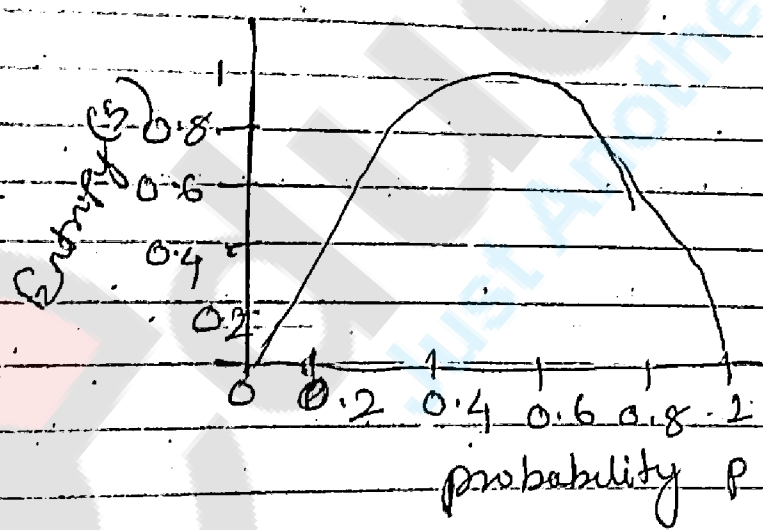 Entropy (S)
1
0.8
0.6
0.4
0.2
0 0.2 0.4 0.6 0.8 1
probability P
Just Anothe